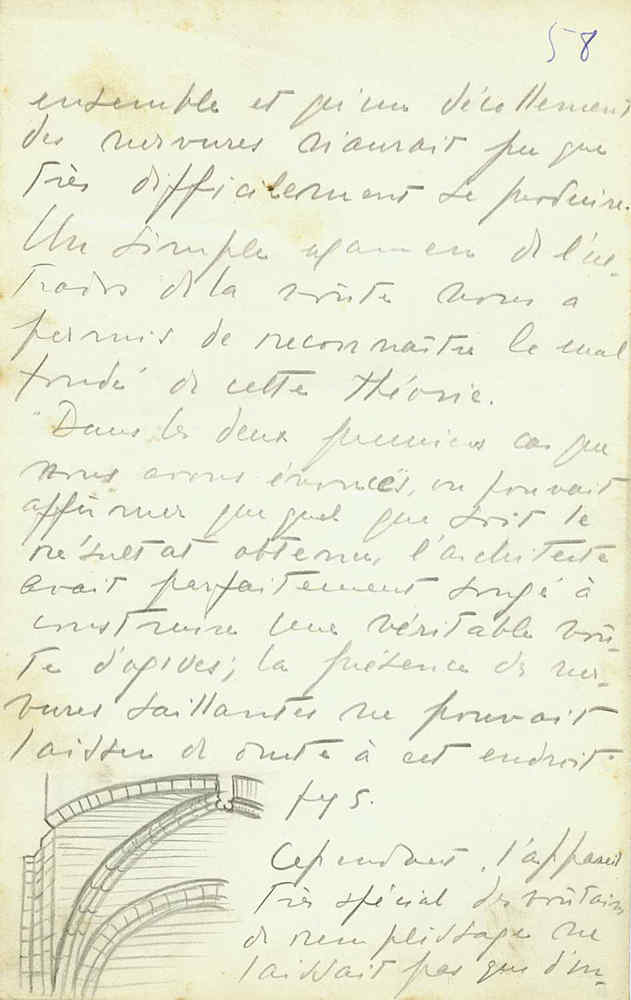 58
ensemble et qu'un décollement
des nervures n'aurait pu que
très difficilement se produire.
Un simple examen de l'ex-
trados de la voûte nous a
permis de reconnaître le mal
fondé de cette théorie.
Dans les deux premiers cas que
nous avons énoncés, on pouvait
affirmer que quel que soit le
résultat obtenu, l'architecte
avait parfaitement songé à
construire une véritable voû-
te d'ogives; la présence de ner-
vures saillantes ne pouvait
laisser de doute à cet endroit
fig 5.
Cependant, l'appareil
très spécial des voûtains
de remplissage ne
laissait pas que d'in-